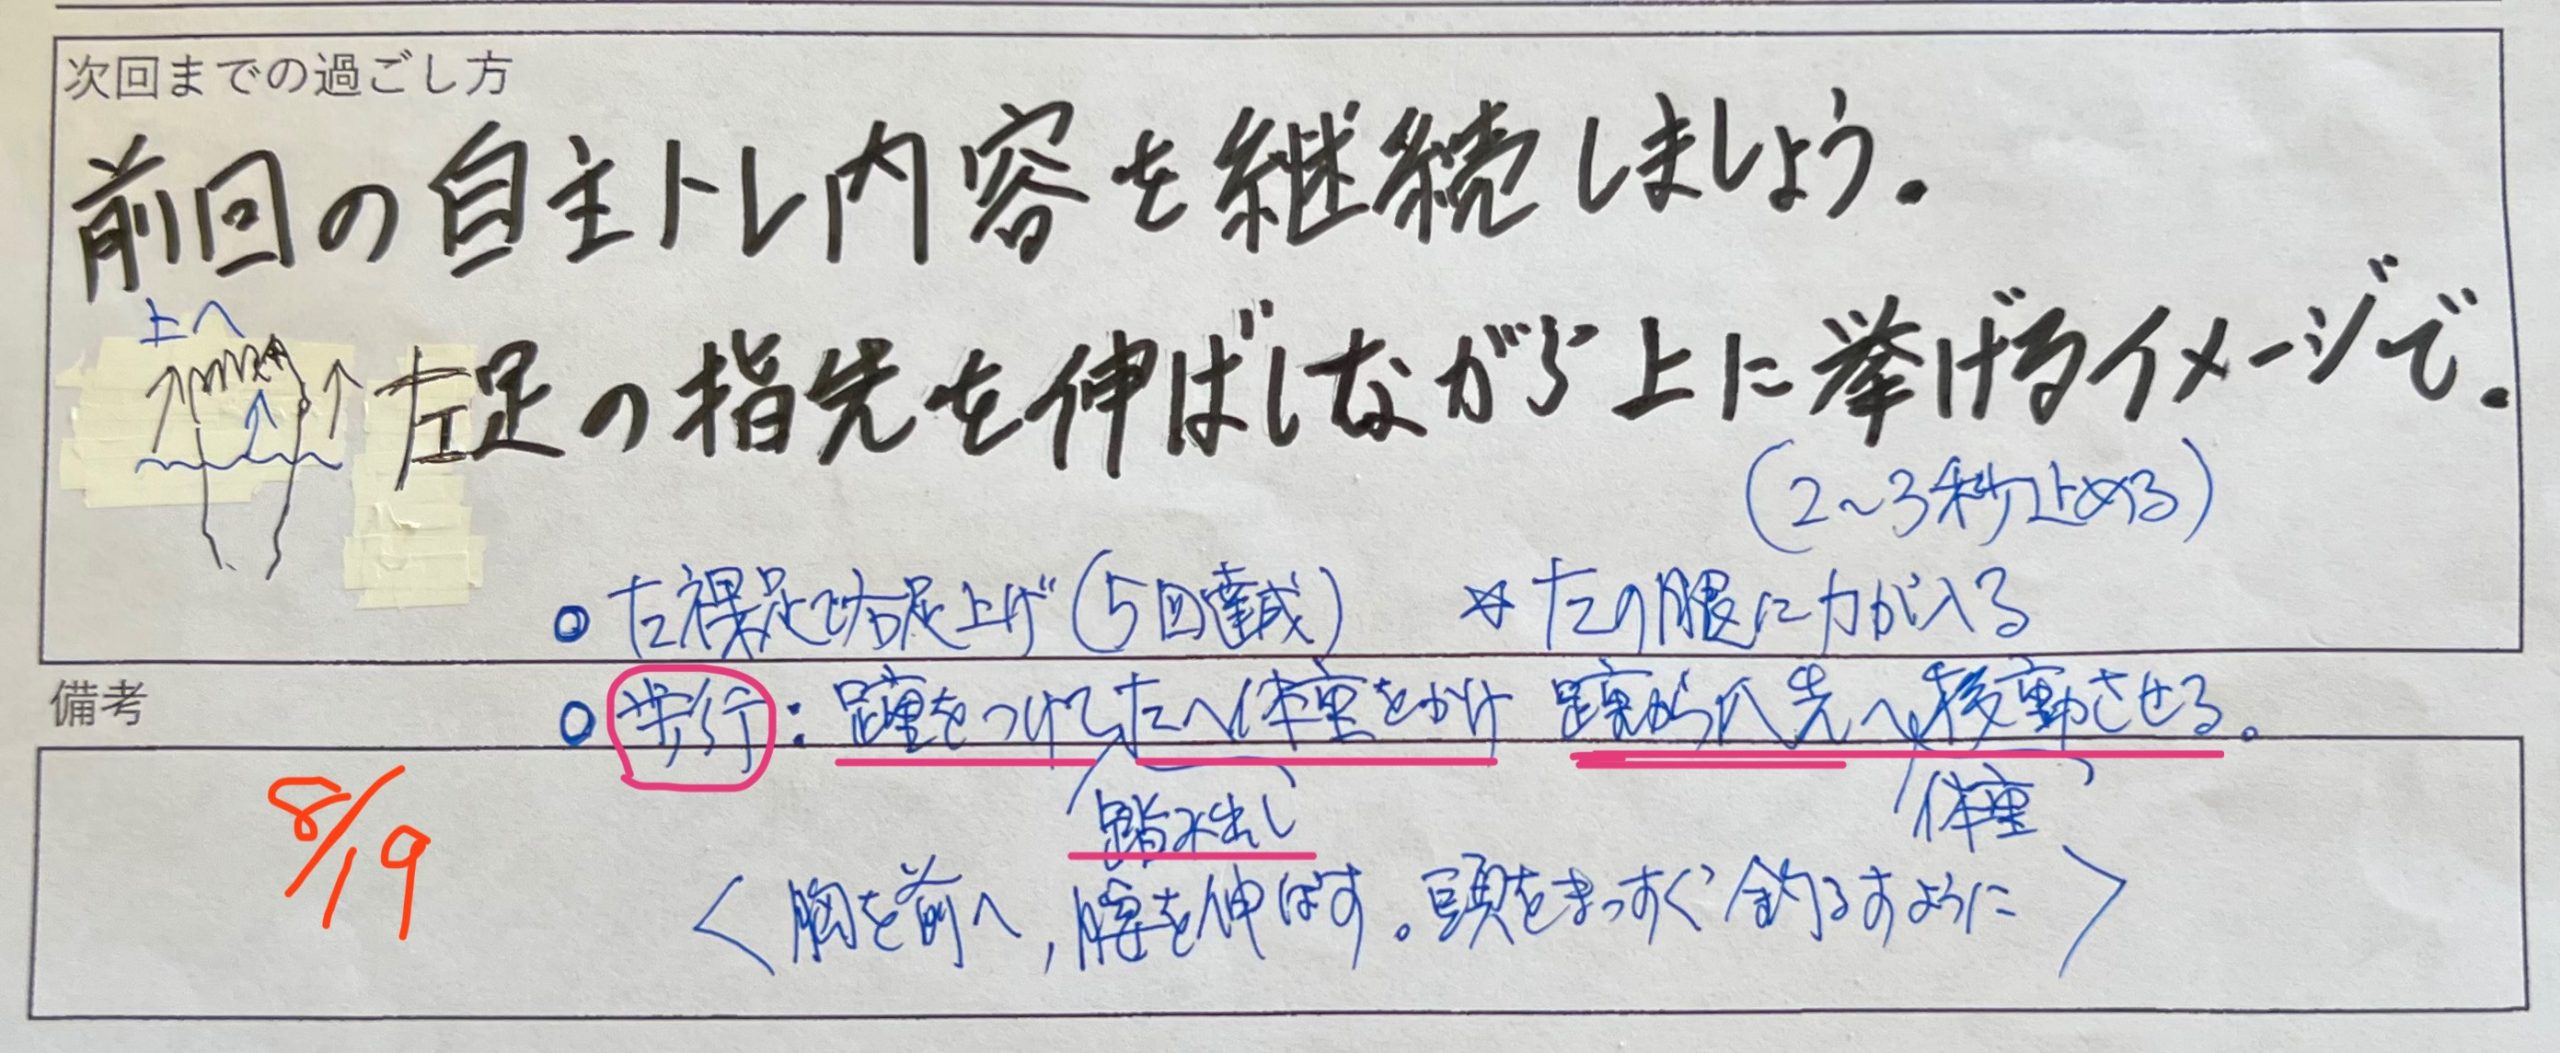 次回までの過ごし方
前回の自主トレ内容を継続しましょう。
上へ
左足の指先を伸ばしながら上に挙げるイメージで。
(2〜3秒止める)
○ 左裸足で右足上げ(5回達成) ☆左の腿に力が入る
備考
○ 歩行:踵をつけて左へ体重をかけ 踵から爪先へ移動させる。
踏み出し
体重
8/19
<胸を前へ,腰を伸ばす。頭をまっすぐ釣るすように>